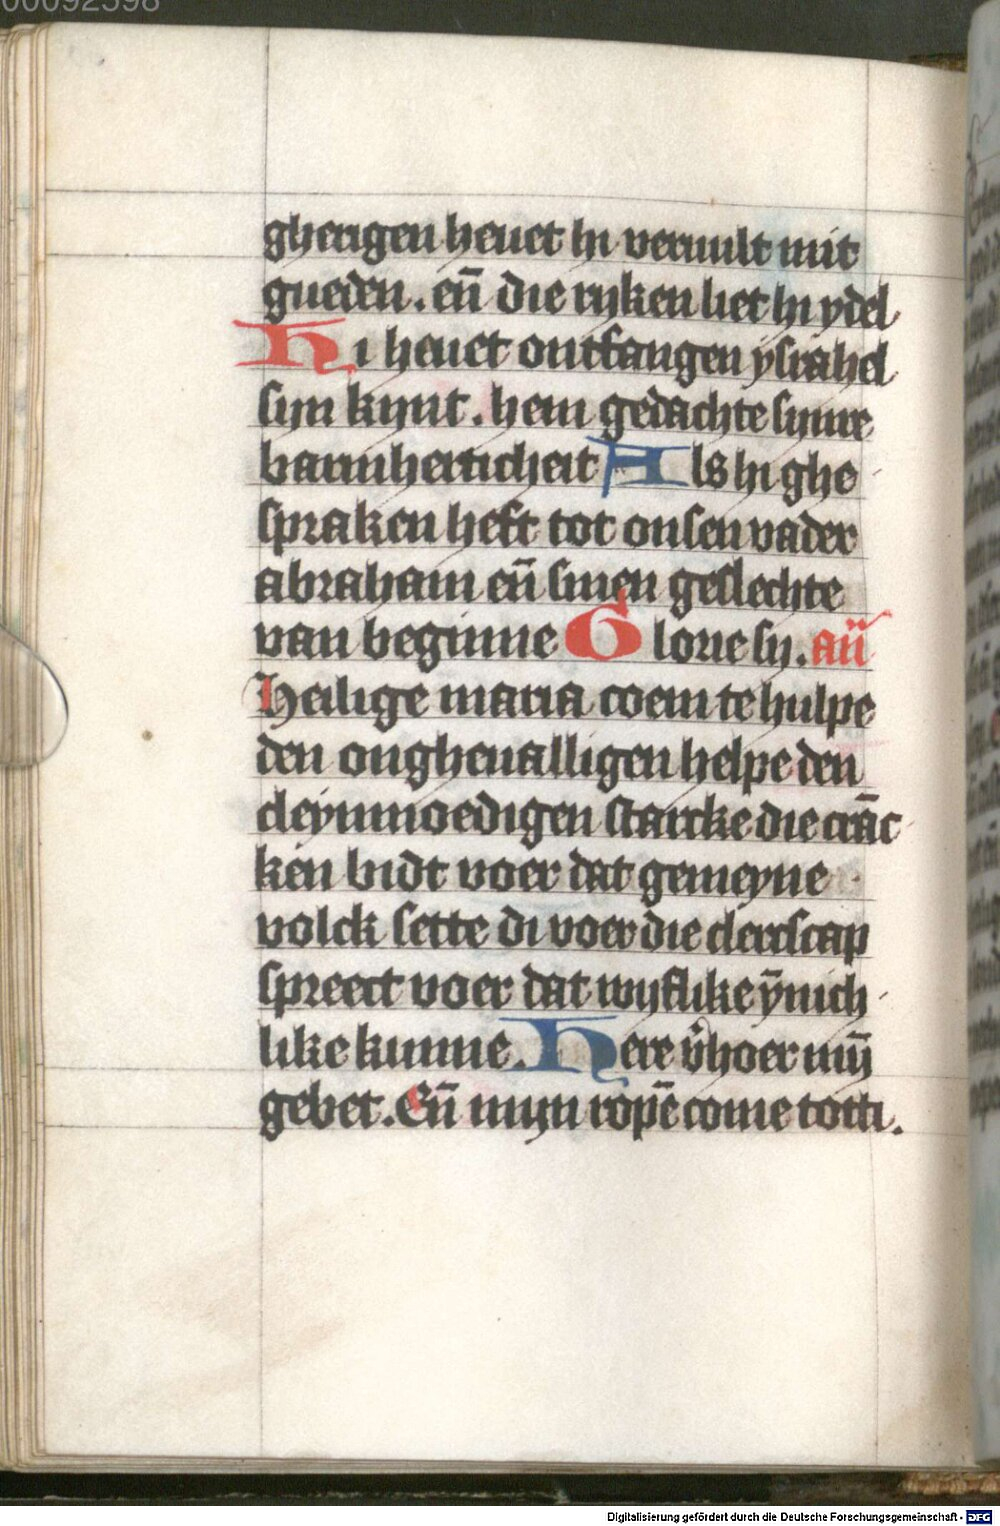 00092598
gherigen heuet hi veruult mit
gueden. en̄ die rijken liet hi ydel
Hi heuet ontfangen ysrahel
sijn kijnt. hem gedachte sijnre
barmherticheit Als hi ghe
spraken heft tot onsen vader
abraham en̄ sinen geslechte
van beginne Glorie sy. an̄
Heilige maria coem te hulpe
den ongheualligen helpe den
cleynmoedigen starcke die crāc
ken bidt voer dat gemeyne
volck sette di voer die clercscap
spreect voer dat wijflike ȳnich
like kunne. Here v̾hoer mȳ
gebet. En̄ mijn ropē come totti.
Digitalisierung gefördert durch die Deutsche Forschungsgemeinschaft - DFG